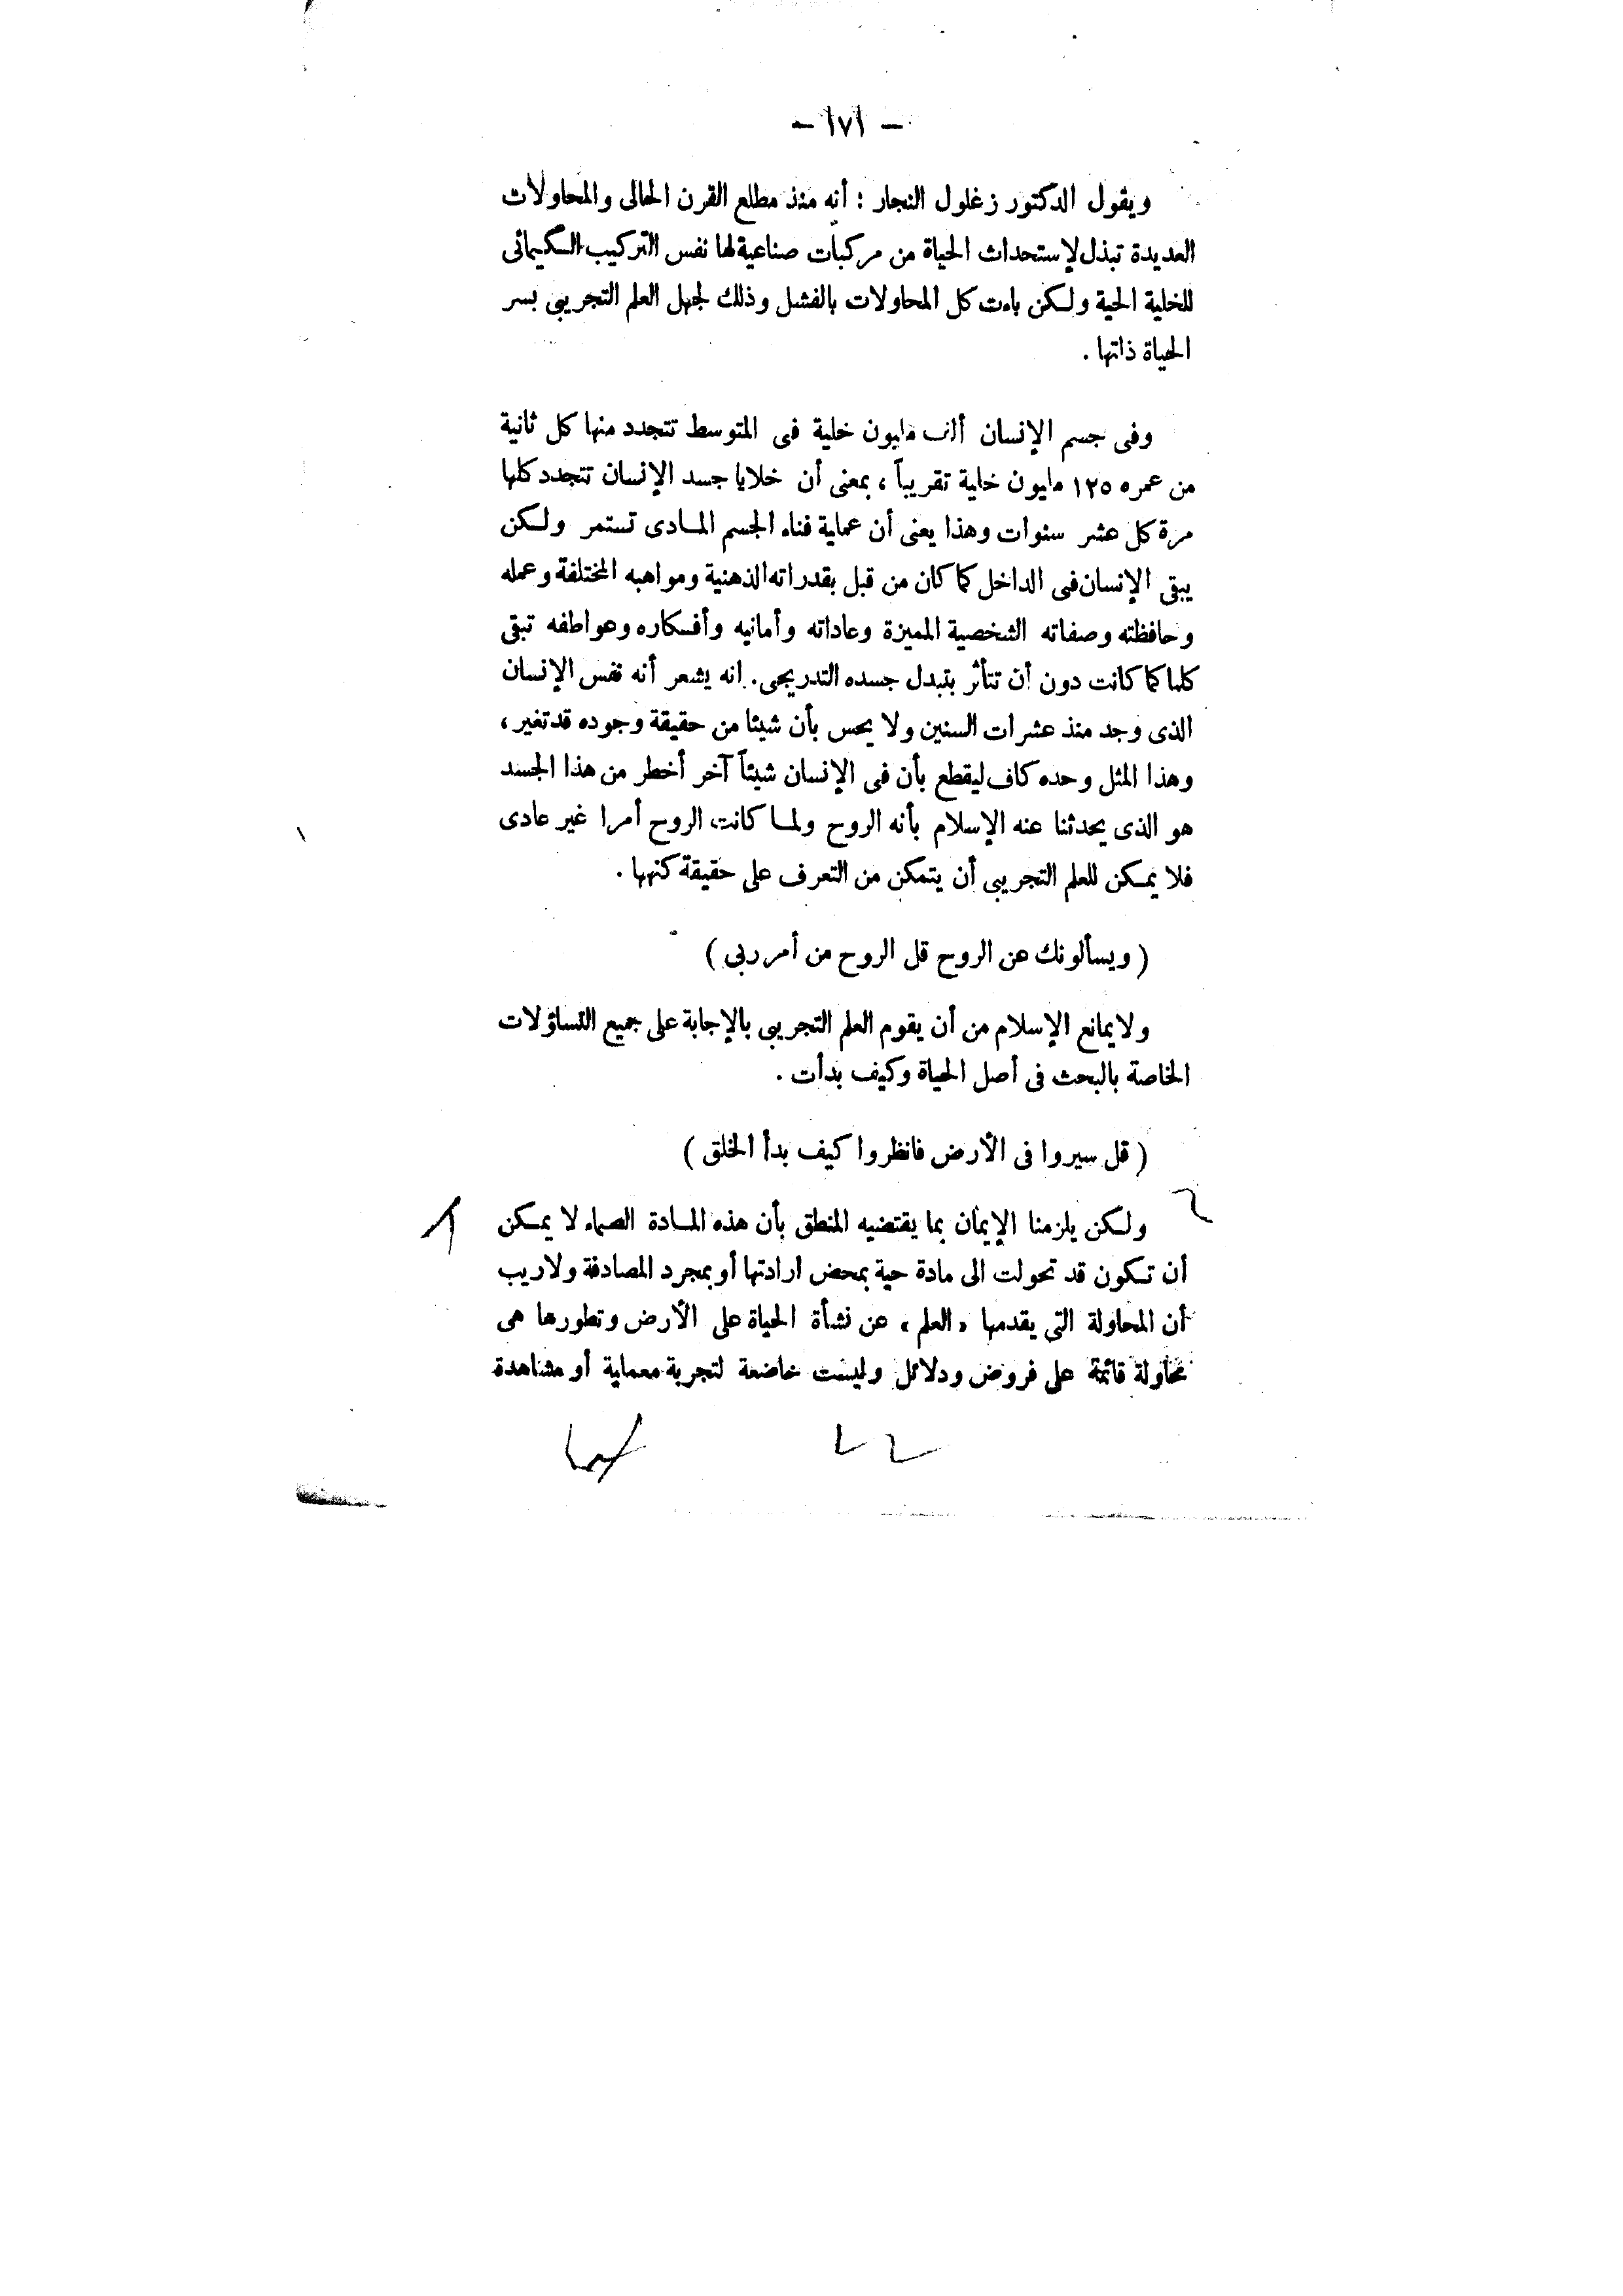 - ١٧١ -
ويقول الدكتور زغلول النجار : أنه منذ مطلع القرن الحالى والمحاولات
العديدة تبذل لإستحداث الحياة من مركبات صناعية لها نفس التركيب الكيمائى
للخلية الحية ولكن باءت كل المحاولات بالفشل وذلك لجهل العلم التجريبى بسر
الحياة ذاتها .
وفى جسم الإنسان ألف مليون خلية فى المتوسط تتجدد منها كل ثانية
من عمره ١٢٥ مليون خلية تقريباً ، بمعنى أن خلايا جسد الإنسان تتجدد كلها
مرة كل عشر سنوات وهذا يعنى أن عملية فناء الجسم المادى تستمر ولكن
يبقى الإنسان فى الداخل كما كان من قبل بقدراته الذهنية ومواهبه المختلفة وعمله
وحافظته وصفاته الشخصية المميزة وعاداته وأمانيه وأفكاره وعواطفه تبقى
كلها كما كانت دون أن تتأثر بتبدل جسده التدريجى. انه يشعر أنه نفس الإنسان
الذى وجد منذ عشرات السنين ولا يحس بأن شيئا من حقيقة وجوده قد تغير ،
وهذا المثل وحده كاف ليقطع بأن فى الإنسان شيئاً آخر أخطر من هذا الجسد
هو الذى يحدثنا عنه الإسلام بأنه الروح ولما كانت الروح أمرا غير عادى
فلا يمكن للعلم التجريبى أن يتمكن من التعرف على حقيقة كنهها .
( ويسألونك عن الروح قل الروح من أمر ربى )
ولا يمانع الإسلام من أن يقوم العلم التجريبى بالإجابة على جميع التساؤلات
الخاصة بالبحث فى أصل الحياة وكيف بدأت .
( قل سيروا فى الأرض فانظروا كيف بدأ الخلق )
ولكن يلزمنا الإيمان بما يقتضيه المنطق بأن هذه المادة الصماء لا يمكن
أن تكون قد تحولت الى مادة حية بمحض ارادتها أو بمجرد المصادفة ولا ريب
أن المحاولة التى يقدمها «العلم» عن نشأة الحياة على الأرض وتطورها هى
محاولة قائمة على فروض ودلائل وليست خاضعة لتجربة معملية أو مشاهدة